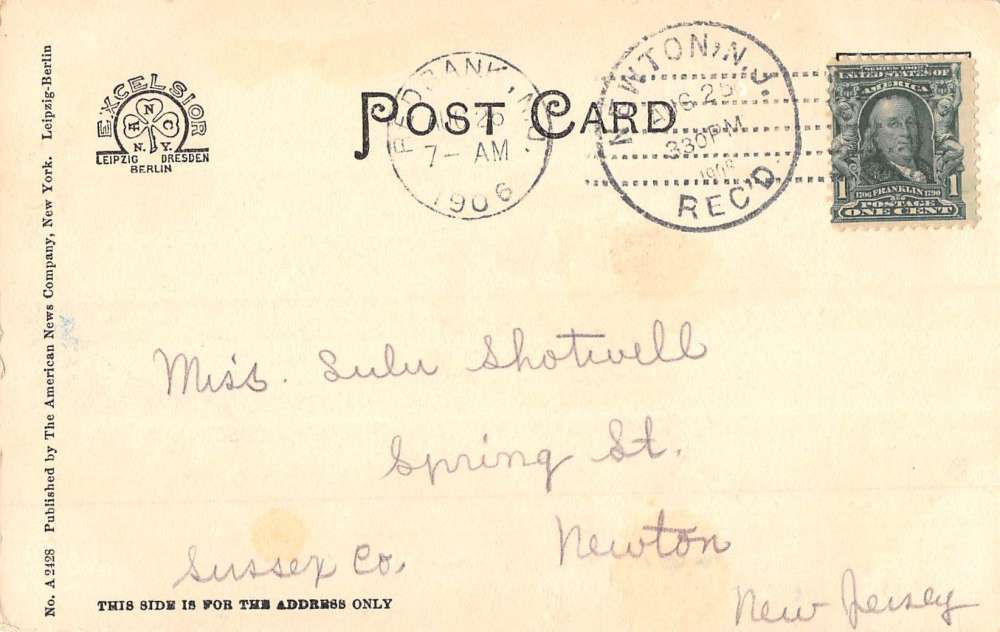 No. A 2428 Published by The American News Company, New York. Leipzig-Berlin
EXCELSIOR
A N C
N. Y.
LEIPZIG DRESDEN
BERLIN
POST CARD
RED BANK, N.J.
25
7- AM
1906
NEWTON, N.J.
AUG 25
330PM
1906
REC'D.
SERIES 1902
UNITED STATES OF
AMERICA
1 1
1706 FRANKLIN 1790
POSTAGE
ONE CENT
Miss. Lulu Shotwell
Spring St.
Newton
Sussex Co.
New Jersey
THIS SIDE IS FOR THE ADDRESS ONLY